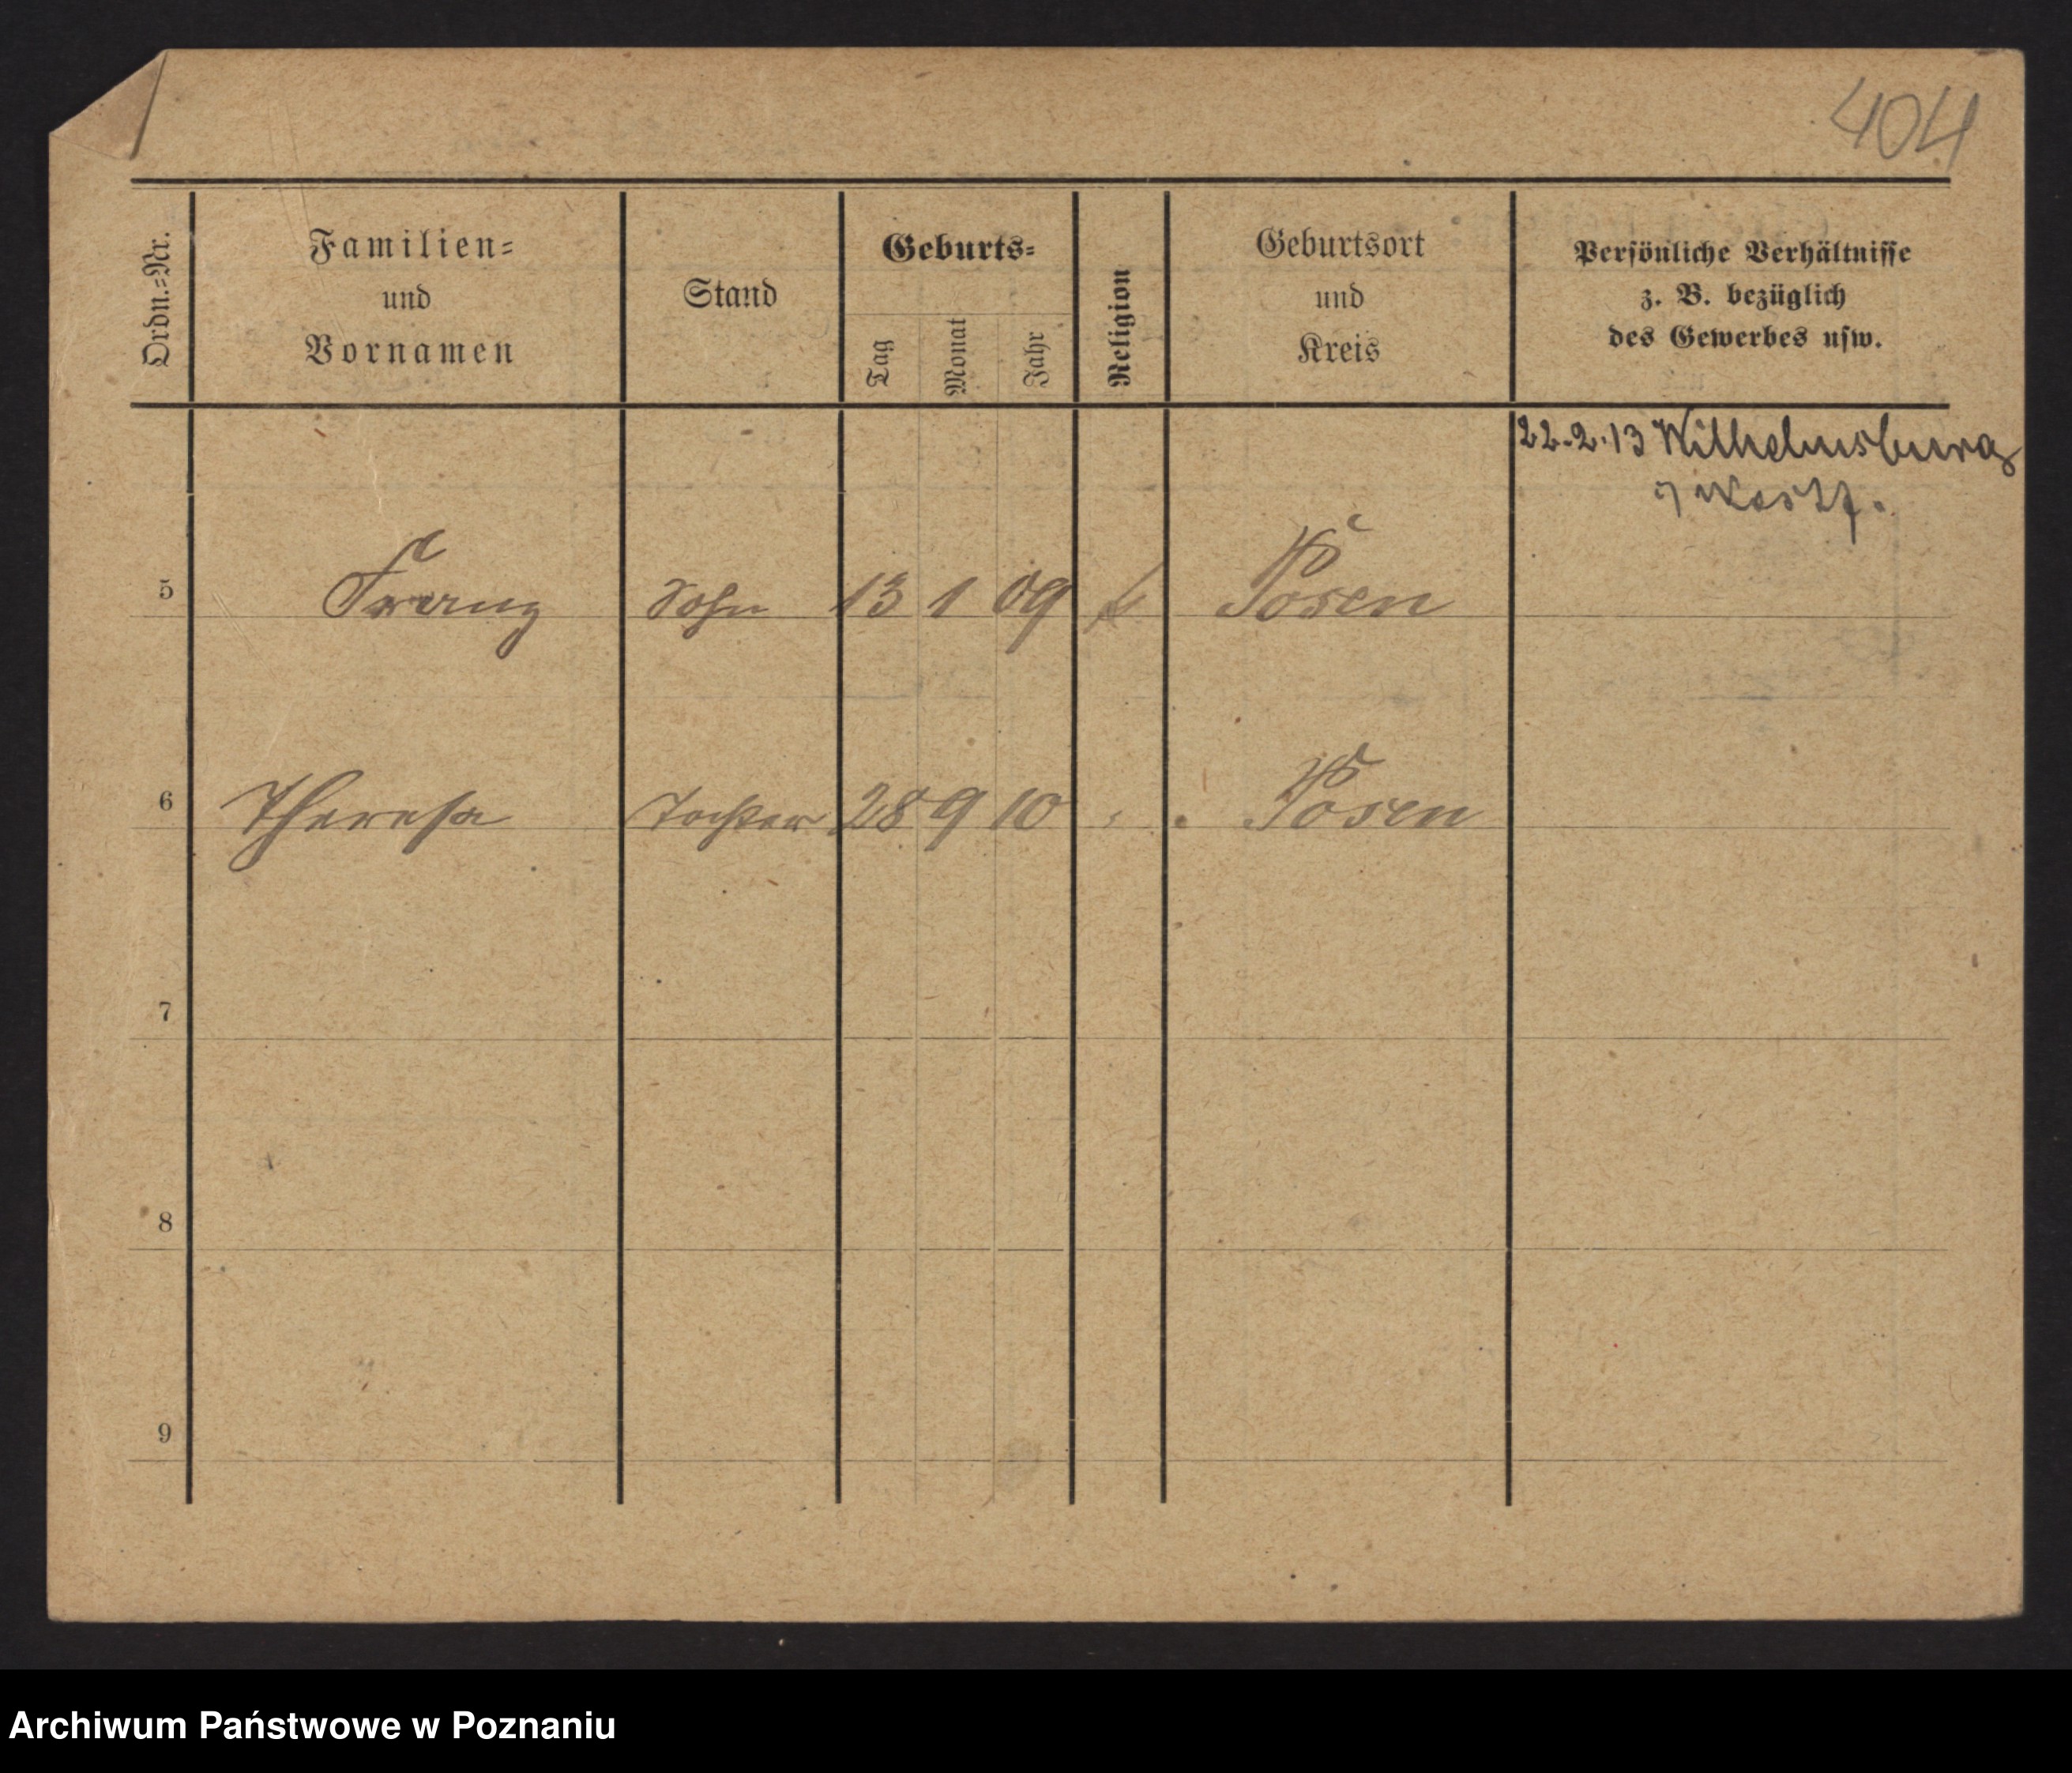 404
Ordn.=Nr.
Familien=
und
Vornamen
Stand
Geburts=
Tag
Monat
Jahr
Religion
Geburtsort
und
Kreis
Persönliche Verhältnisse
z. B. bezüglich
des Gewerbes usw.
22.2.13 Wilhelmsburg
5 Franz Sohn 13 1 09 k Posen
6 Theresa Tochter 28 9 10 " Posen
7
8
9
Archiwum Państwowe w Poznaniu